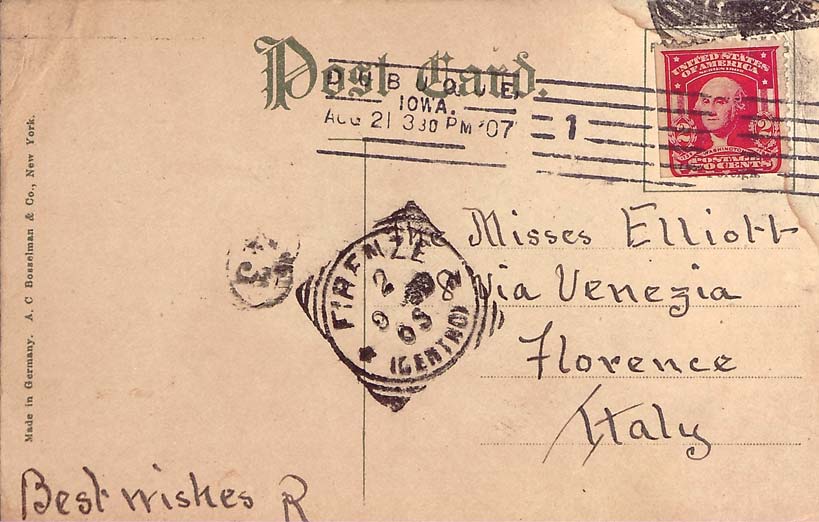 Post Card.
DUBUQUE,
IOWA.
AUG 21 330 PM '07
1
UNITED STATES
OF AMERICA
SERIES 1902
2 2
WASHINGTON
POSTAGE
TWO CENTS
The Misses Elliott
Via Venezia
Florence
Italy
FIRENZE
(CENTRO)
3
Best wishes R
Made in Germany. A. C Bosselman & Co., New York.